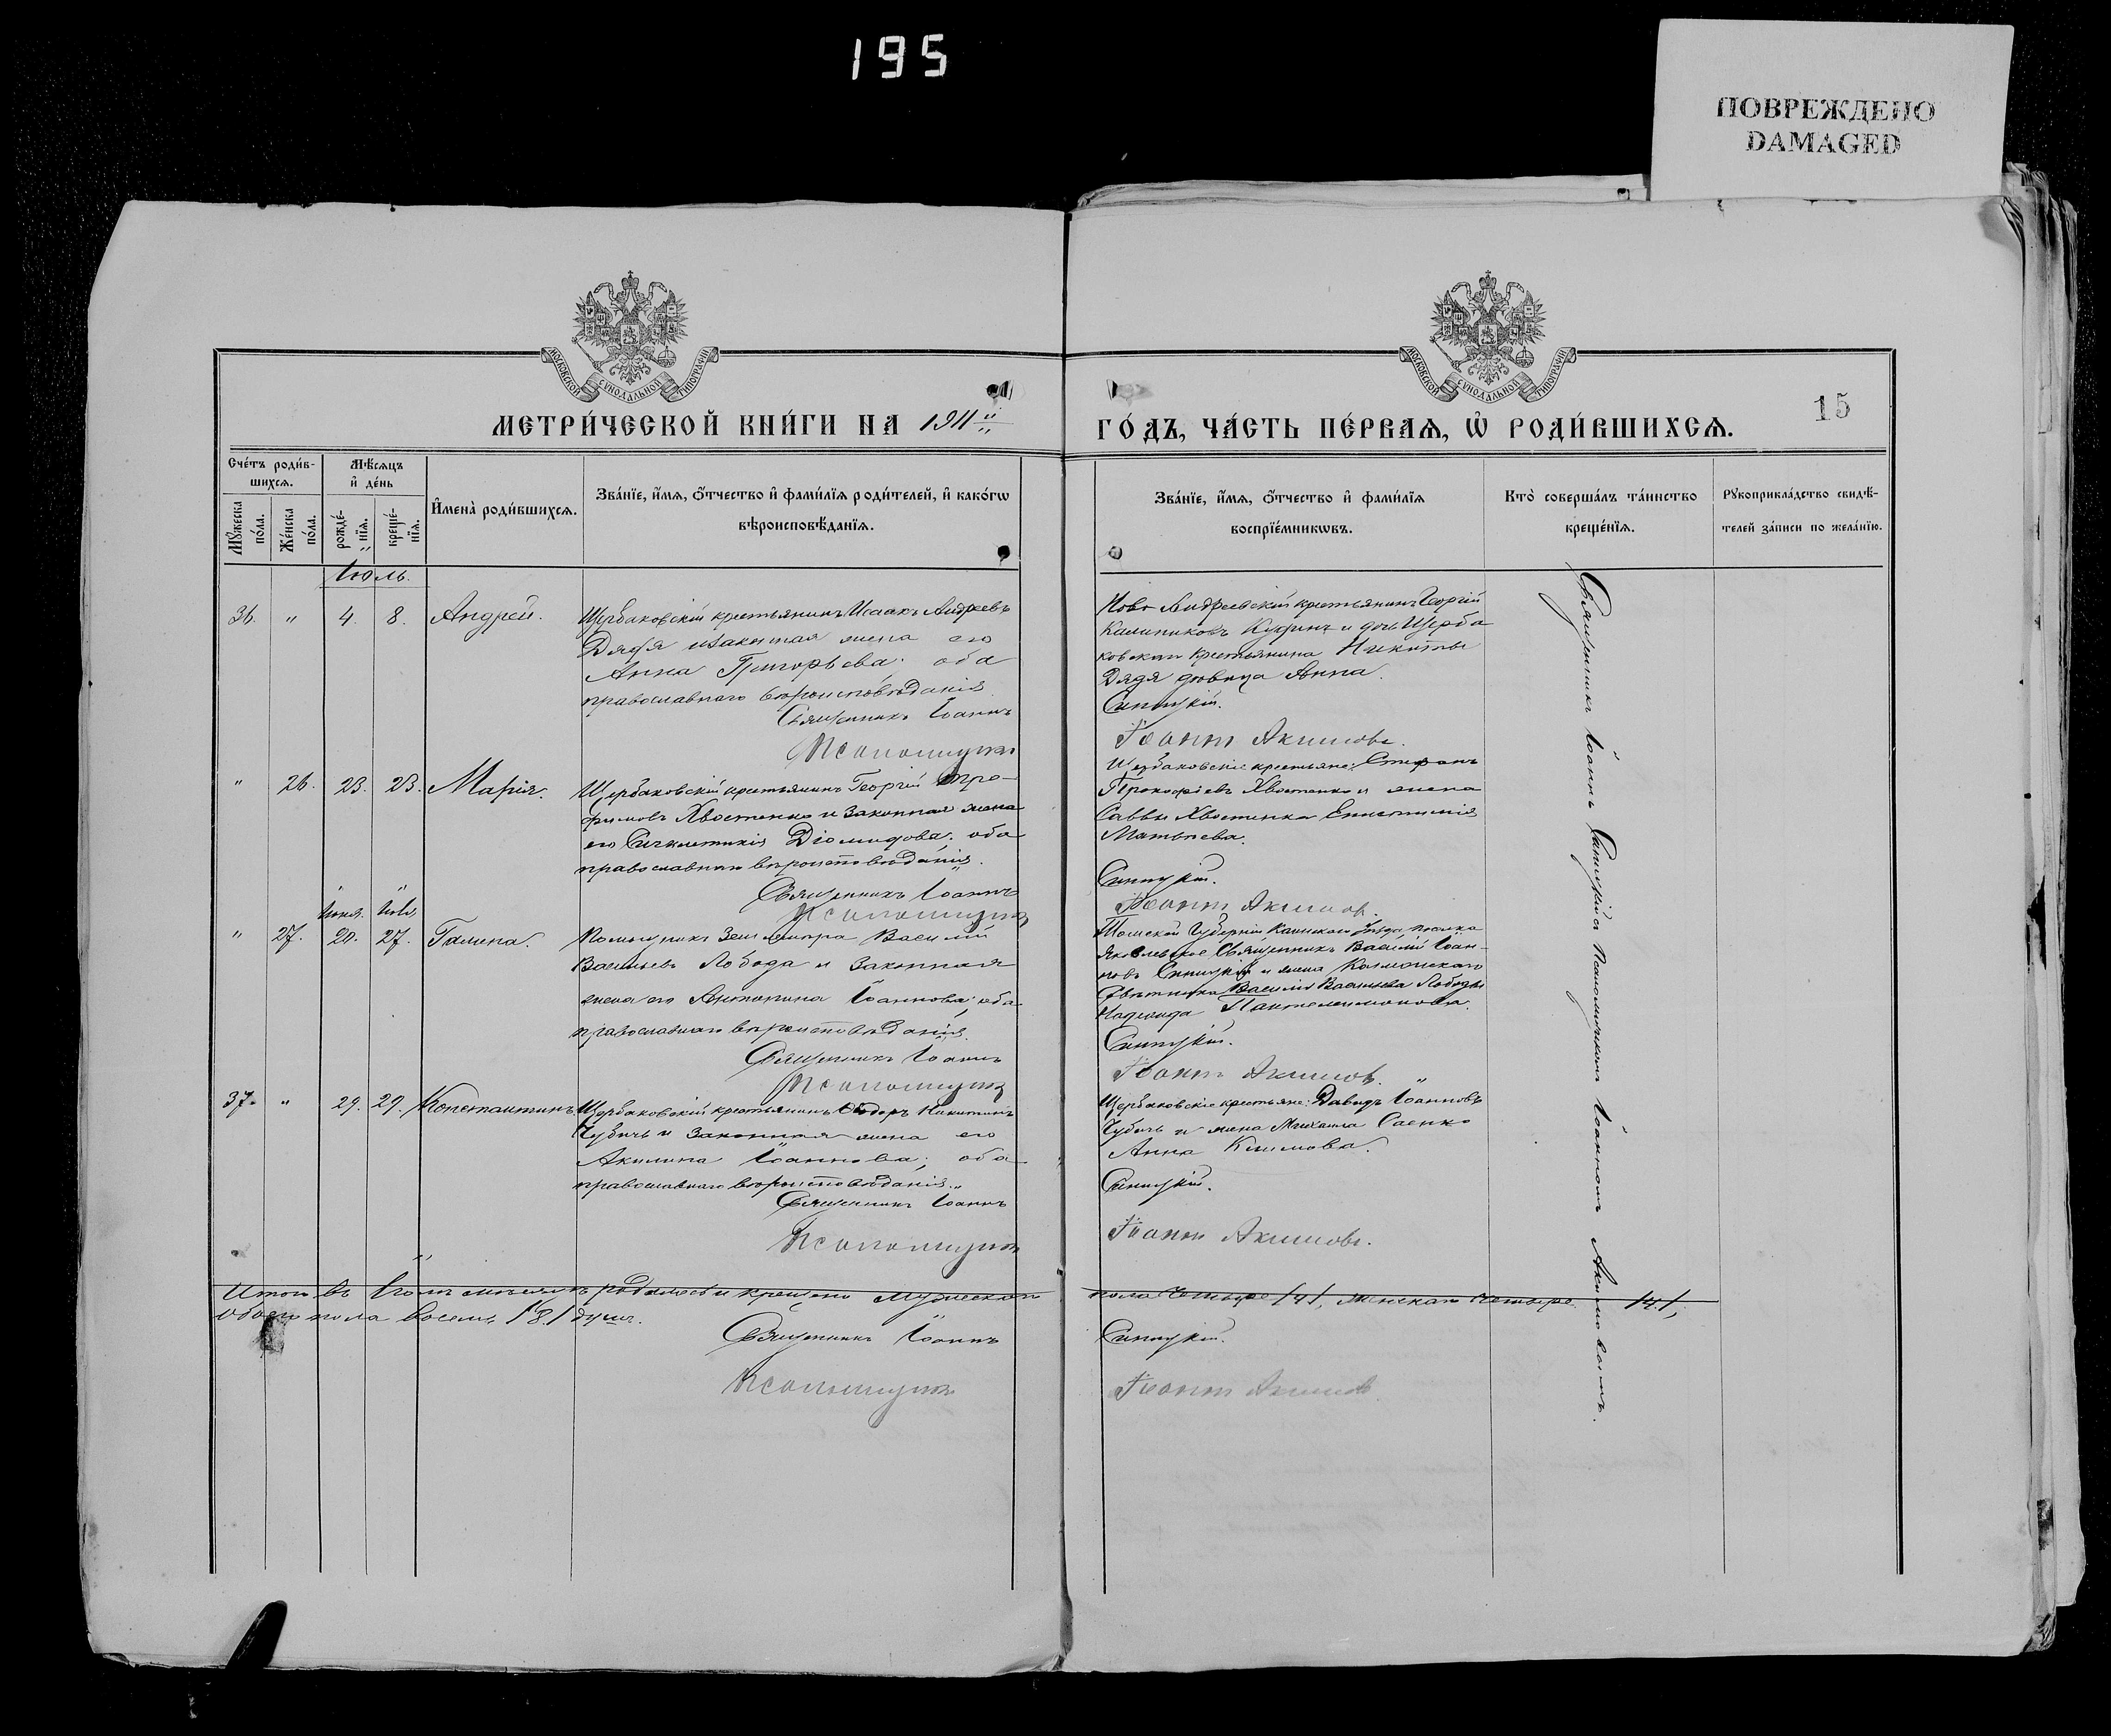 195
ПОВРЕЖДЕНО
DAMAGED
МОСКОВСКОЙ СѴНОДАЛЬНОЙ ТИПОГРАФІИ
МОСКОВСКОЙ СѴНОДАЛЬНОЙ ТИПОГРАФІИ
15
МЕТРИ́ЧЕСКОЙ КНИ́ГИ НА 1911й
ГО́ДЪ, ЧА́СТЬ ПЕ́РВАѦ, Ѡ҆ РОДИ́ВШИХСѦ.
Сче́тъ роди́в-
шихсѧ.
Мꙋ́жеска по́ла.
Же́нска по́ла.
Мѣ́сѧцъ
и҆ де́нь
рожде́-нїѧ.
креще́-нїѧ.
И҆мена̀ роди́вшихсѧ.
Зва́нїе, и҆́мѧ, ѻ҆́тчество и҆ фами́лїѧ роди́телей, и҆ како́гѡ
вѣроисповѣ́данїѧ.
Зва́нїе, и҆́мѧ, ѻ҆́тчество и҆ фами́лїѧ
воспрїе́мникѡвъ.
Кто̀ соверша́лъ та́инство
креще́нїѧ.
Рꙋкоприкла́дство свидѣ́-
телей за́писи по жела́нїю.
Іюль.
36. " 4. 8. Андрей.
Щербаковскій крестьянинъ Исаакъ Андреевъ
Дядя и законная жена его
Анна Григорьева; оба
православнаго вѣроисповѣданія
Священникъ Іоаннъ
Псаломщикъ
Ново Андреевскій крестьянинъ Георгій
Калиниковъ и дочь Щерба
ковскаго крестьянина Никиты
Дядя дѣвица Анна.
Синицкій.
Іоаннъ Акимовъ.
" 26. 23. 23. Марія.
Щербаковскій крестьянинъ Георгій Тро-
фимовъ Хвостенко и законная жена
его Синклитикія Діомидова; оба
православнаго вѣроисповѣданія.
Священникъ Іоаннъ
Псаломщикъ
Щербаковскіе крестьяне: Стефанъ
Прокофіевъ Хвостенко и жена
Саввы Хвостенка Епистимія
Матвѣева.
Синицкій.
Іоаннъ Акимовъ.
Іюня. Іюля
" 27. 20. 27. Галина.
Помощникъ Землемѣра Василій
Васильевъ Лобода и законная
жена его Антонина Іоаннова; оба
православнаго вѣроисповѣданія.
Священникъ Іоаннъ
Псаломщикъ
Томской Губерніи Каинскаго уѣзда поселка
Яковлевское Священникъ Василій Іоан-
новъ Синицкій и жена
Совѣтника Василія Васильева Лободы
Надежда Пантелеимонова.
Синицкій.
Іоаннъ Акимовъ.
37. " 29. 29. Константинъ
Щербаковскій крестьянинъ Ѳеодоръ Никитинъ
Чубичъ и законная жена его
Акилина Іоаннова; оба
православнаго вѣроисповѣданія.
Священникъ Іоаннъ
Псаломщикъ
Щербаковскіе крестьяне: Давидъ Іоанновъ
Чубичъ и жена Михаила Саенко
Анна Климова.
Синицкій.
Іоаннъ Акимовъ.
Священникъ Іоаннъ Синицкій съ Псаломщикомъ Іоанномъ Акимовымъ.
Итого въ Іюлѣ мѣсяцѣ родилось и крещено Мужескаго пола четыре /4/, Женскаго четыре /4/,
обоего пола восемь /8/ душъ.
Священникъ Іоаннъ Синицкій.
Псаломщикъ Іоаннъ Акимовъ